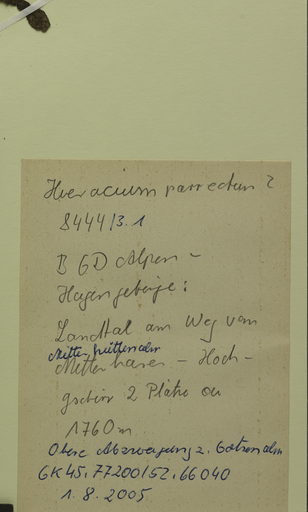 Hieracium porrectum ?
8444/3.1
B GD Alpen -
Hagengebirge:
Landtal am Weg vom
Mitterhüttenalm
Mitterkaser - Hoch-
gschirr 2 Plätze ca
1760m
Obere Abzweigung z. Gotzenalm
GK 45.77200/52.66040
1.8.2005